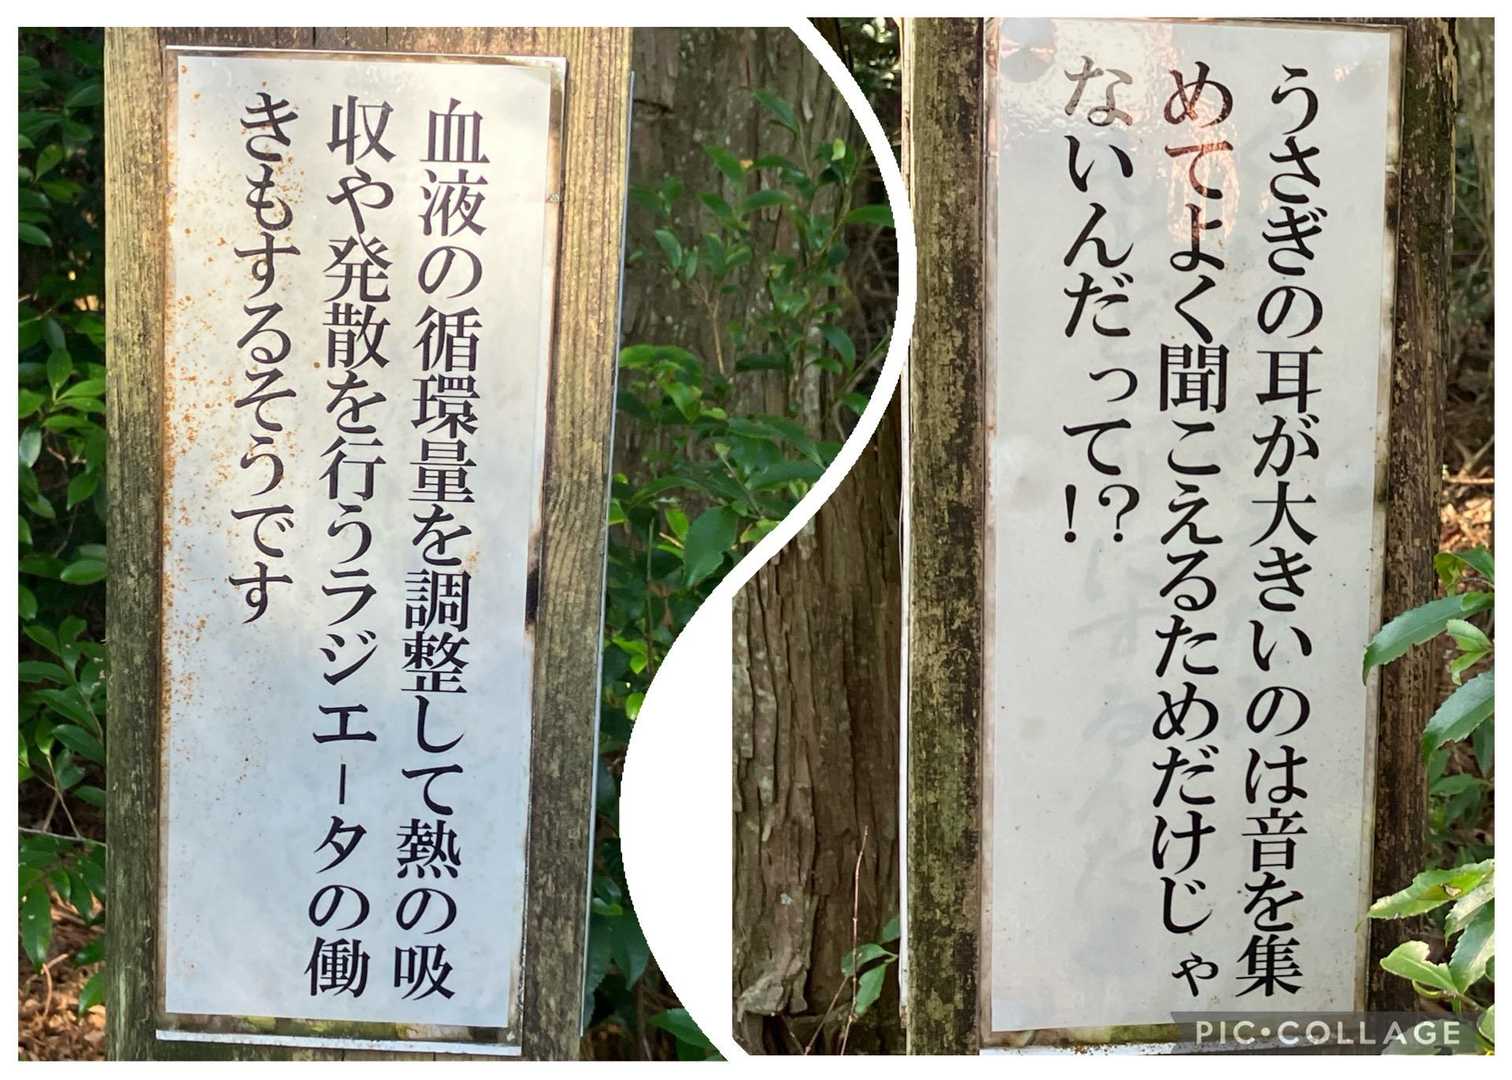 うさぎの耳が大きいのは音を集
めてよく聞こえるためだけじゃ
ないんだって?!
血液の循環量を調整して熱の吸
収や発散を行うラジエータの働
きもするそうです
PIC•COLLAGE